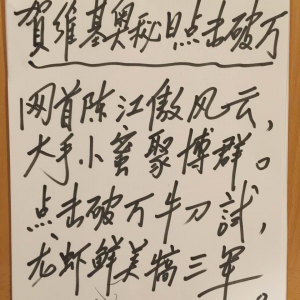 賀维基奥秘日点击破万
网首陈江傲风云,
大手小蜜聚博群。
点击破万牛刀試,
龙虾鲜美犒三军。